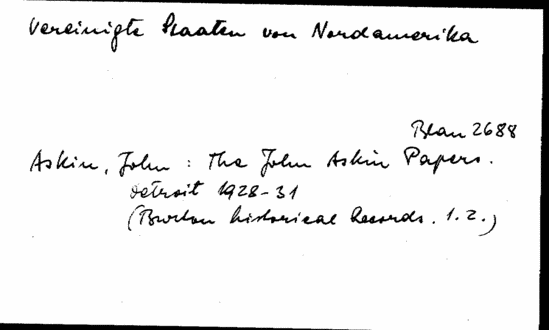 Vereinigte Staaten von Nordamerika
Blau 2688
Askin, John : The John Askin Papers.
Detroit 1928-31
(Burton historical Records. 1.2.)